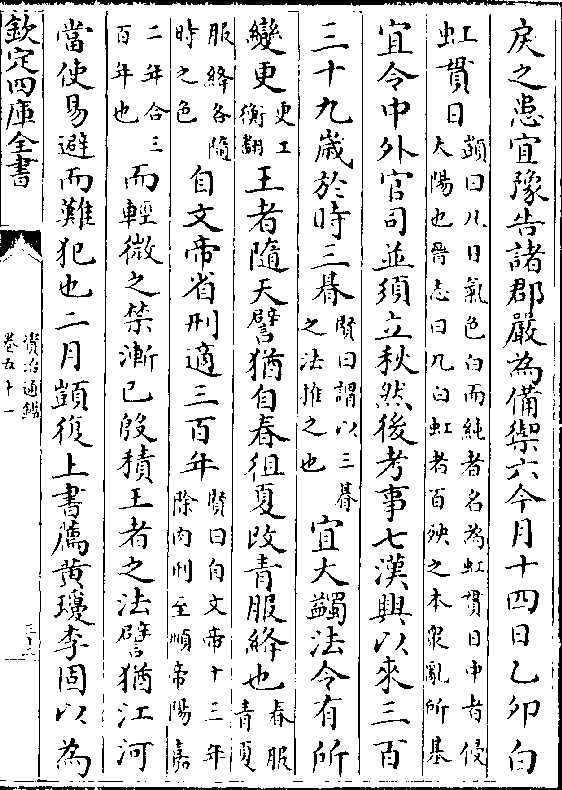 戾之患宜豫告諸郡嚴為備禦六今月十四日乙卯白
虹貫日顗曰凡日氣色白而純者名為虹貫日中者侵太陽也晉志曰凡白虹者百殃之本衆亂所基
宜令中外官司並須立秋然後考事七漢興以來三百
三十九歲於時三朞賢曰謂以三朞之法推之也宜大蠲法令有所
變更更工衡翻王者隨天譬猶自春徂夏改青服絳也春服青夏
服絳各隨時之色自文帝省刑適三百年賢曰自文帝十三年除肉刑至順帝陽嘉
二年合三百年也而輕微之禁漸已殷積王者之法譬猶江河
當使易避而難犯也二月顗復上書薦黄瓊李固以為
欽定四庫全書
資治通鑑
卷五十一